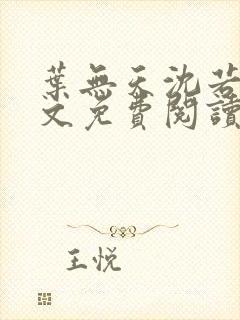 葉無天沈若
文免費閱讀
王悅